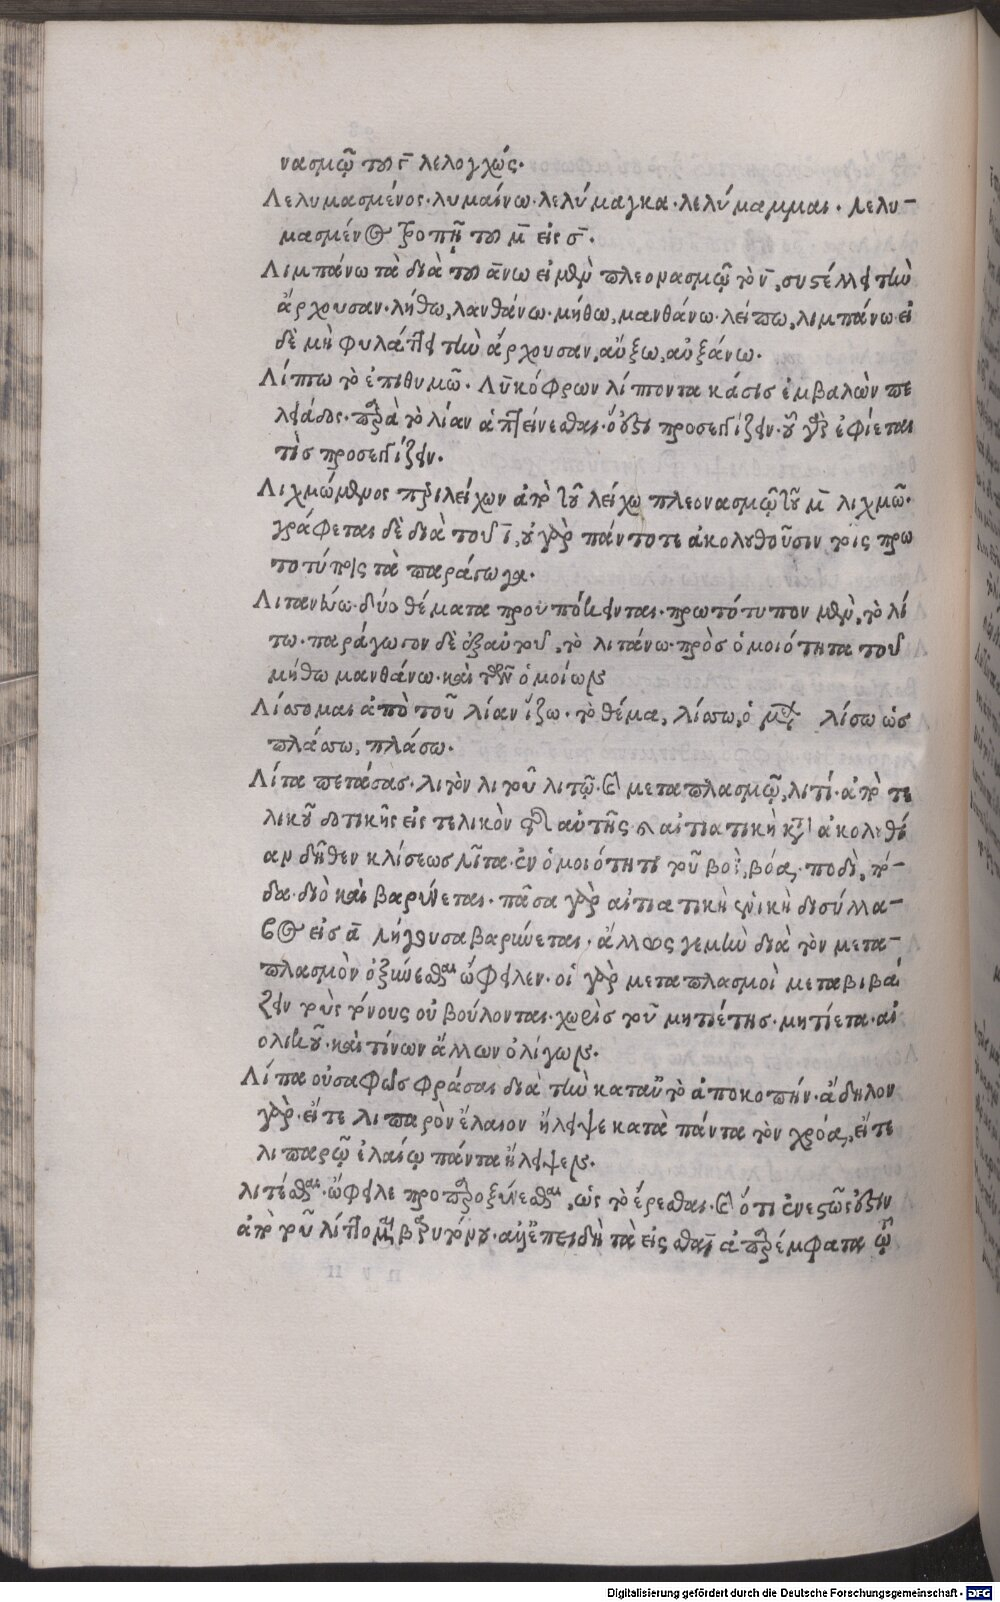 νασμῷ τοῦ γ̄ λελογχώς.
Λελυμασμένος. λυμαίνω. λελύμαγκα. λελύμαμμαι. λελυ-
μασμένος τροπῇ τοῦ μ̄ εἰς σ̄.
Λιμπάνω τὰ διὰ τοῦ ᾱνω εἰ μὲν πλεονασμῷ τὸ ν̄, συστέλλει τὴν
ἄρχουσαν. λήθω, λανθάνω. μήθω, μανθάνω. λείπω, λιμπάνω εἰ
δὲ μὴ φυλάττει τὴν ἄρχουσαν, αὔξω, αὐξάνω.
Λίπτω τὸ ἐπιθυμῶ. Λυκόφρων λίπτοντα κάσις ἐμβαλὼν πε
λειάδος. παρὰ τὸ λίαν ἅπτεσθαι. ὅ ἐστι προσεγγίζειν. οὗ γάρ τις ἐφίεται
τις προσεγγίζειν.
Λιχμώμενος περιλείχων ἀπὸ τοῦ λείχω πλεονασμῷ τοῦ μ̄ λιχμῶ.
γράφεται δὲ διὰ τοῦ ῑ, οὐ γὰρ πάντοτε ἀκολουθοῦσιν τοῖς πρω
τοτύποις τὰ παράγωγα.
Λιτανεύω. δύο θέματα προυπόκεινται. πρωτότυπον μὲν, τὸ λί
τω. παράγωγον δὲ ἐξ αὐτοῦ, τὸ λιτάνω. πρὸς ὁμοιότητα τοῦ
μήθω μανθάνω. καὶ τῶν ὁμοίων
Λίσσομαι ἀπὸ τοῦ λίαν ἵζω. τὸ θέμα, λίσσω, ὁ μέλλων λίσω ὡς
πλάσσω, πλάσω.
Λίτα πετάσας. λιτὸν λιτοῦ λιτῷ. καὶ μεταπλασμῷ, λιτί. ἀπὸ τε
λικοῦ δοτικῆς εἰς τελικὸν αὐτῆς αἰτιατικὴ κατ' ἀκολουθί
αν δῆθεν κλίσεως λῖτα. ἐν ὁμοιότητι τοῦ βοῒ, βόα, ποδὶ, πό-
δα. διὸ καὶ βαρύνεται. πᾶσα γὰρ αἰτιατικὴ ἑνικὴ δισύλλα-
βος εἰς ᾱ λήγουσα βαρύνεται. ἄλλως γε μὴν διὰ τὸν μετα-
πλασμὸν ὀξύνεσθαι ὤφειλεν. οἱ γὰρ μεταπλασμοὶ μεταβιβά
ζειν τοὺς τόνους οὐ βούλονται. χωρὶς τοῦ μητιέτης. μητίετα. αἰ
ολικοῦ. καὶ τίνων ἄλλων ὀλίγων.
Λίπα οὐ σαφῶς φράσαι διὰ τὴν κατ' αὐτὸ ἀποκοπήν. ἄδηλον
γὰρ. εἴτε λιπαρὸν ἔλαιον ἤλειψε κατὰ πάντα τὸν χρόα, εἴτε
λιπαρῷ ἐλαίῳ πάντα ἤλειψεν.
λιτέσθαι. ὤφειλε προπαροξύνεσθαι, ὡς τὸ ἔρεσθαι. καὶ ὅτι ἐνεστῶς ἐστιν
ἀπὸ τοῦ λίτομαι βαρυτόνου. ἐπειδὴ τὰ εἰς θαῑ ἀπαρέμφατα